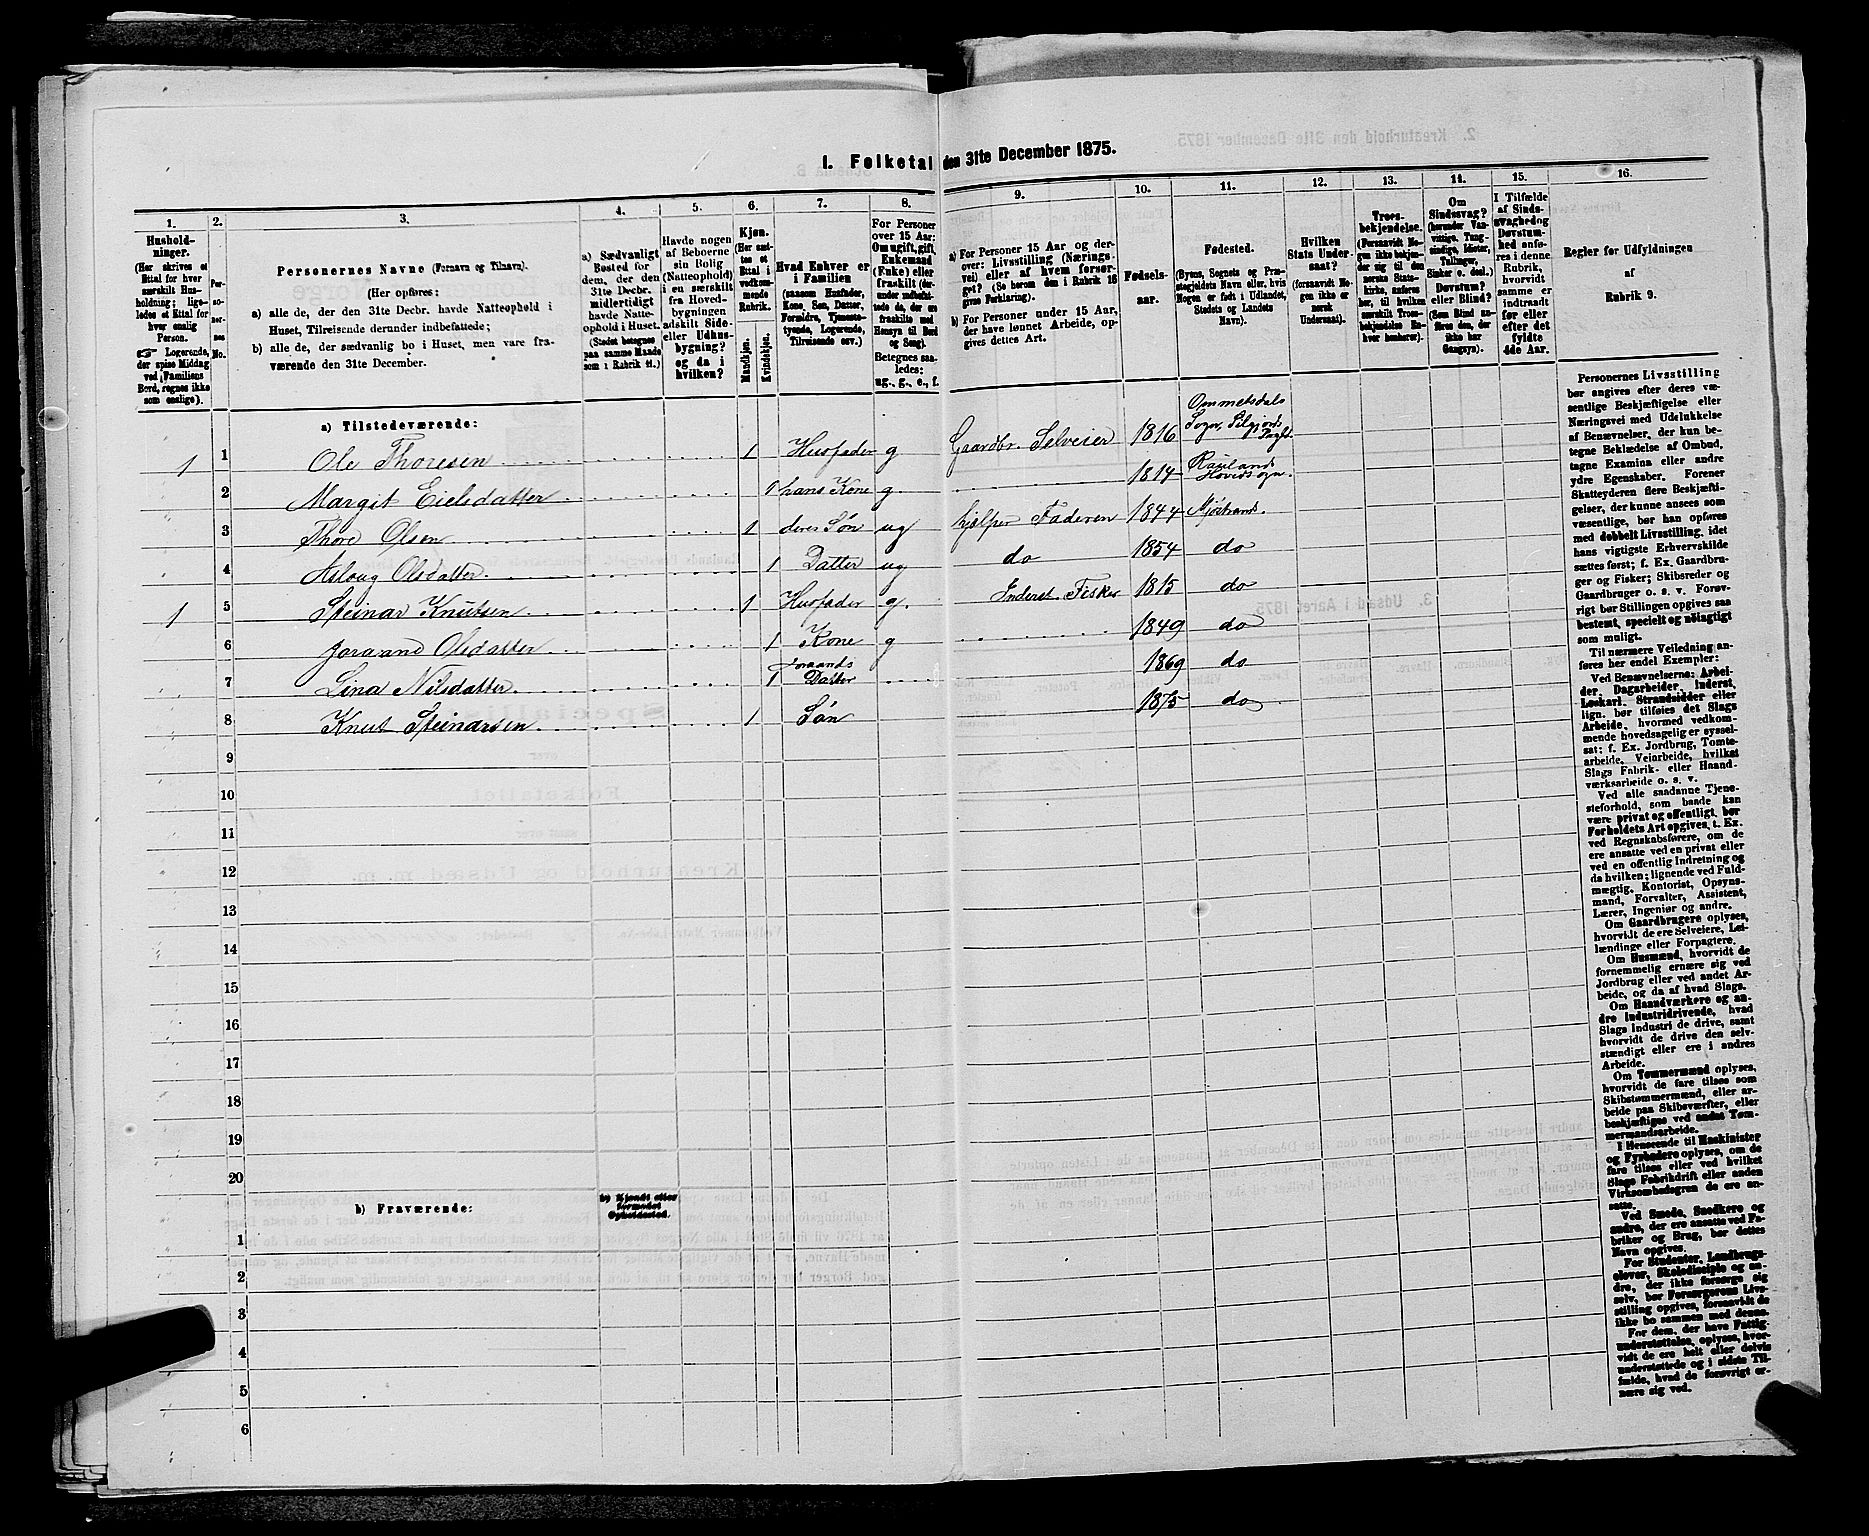 I. Folketal den 31te December 1875.
1.
Hushold-
ninger.
(Her skrives et
Ettal for hver
særskilt Hus-
holdning; lige-
ledes et Ettal for
hver enslig
Person.
Logerende,
der spise Middag
ved Familiens
Bord, regnes ikke
som enslige).
2.
Per-
so-
ner-
nes
No.
3.
Personernes Navne (Fornavn og Tilnavn).
(Her opføres:
a) alle de, der den 31te Decbr. havde Natteophold i
Huset, Tilreisende derunder indbefattede;
b) alle de, der sædvanlig bo i Huset, men vare fra-
værende den 31te December.
4.
a) Sædvanligt
Bosted for
dem, der den
31te Decbr.
midlertidigt
havde Natte-
ophold i Huset.
(Stedet betegnes
paa samme Maade
som i Rubrik 11.)
5.
Havde nogen
af Beboerne
sin Bolig
(Natteophold)
i en særskilt
fra Hoved-
bygningen
adskilt Side-
eller Udhus-
bygning?
og da i
hvilken?
6.
Kjøn.
(Her sæt-
tes et
Ettal i
vedkom-
mende
Rubrik.
Mandkjøn.
Kvindekjøn.
7.
Hvad Enhver er
i Familien
(saasom Husfader,
Kone, Søn, Datter,
Forældre, Tjeneste-
tyende, Logerende,
Tilreisende osv.)
8.
For Personer
over 15 Aar:
Om ugift, gift,
Enkemand
(Enke) eller
fraskilt (der-
under indbefat-
tede de, der ere
fraskilte med
Hensyn til Bord
og Seng).
Betegnes saa-
ledes:
ug., g., e., f.
9.
a) For Personer 15 Aar og der-
over: Livsstilling (Nærings-
vei) eller af hvem forsør-
get? (Se herom den i Rubrik 16
givne Forklaring).
b) For Personer under 15 Aar,
der have lønnet Arbeide, op-
gives dettes Art.
10.
Fødsels-
aar.
11.
Fødested.
(Byens, Sognets og Præ-
stegjeldets Navn eller, hvis
Nogen er født i Udlandet,
Stedets og Landets
Navn).
12.
Hvilken
Stats Under-
saat?
(forsaavidt No-
gen ikke er
norsk
Undersaat).
13.
Troes-
bekjendelse.
(Forsaavidt No-
gen ikke bekjen-
der sig til den
norske Stats-
kirke, anføres
her, til hvilken
særskilt Troes-
bekjendelse En-
hver henhører).
14.
Om
Sindssvag?
(herunder Van-
vittige, Tung-
sindige, Idioter,
Tullinger,
Sinker o. desl.)
Døvstum?
eller Blind?
(Som Blind an-
føres den, der
ikke har
Gangsyn).
15.
I Tilfælde
af Sinds-
svaghed og
Døvstum-
hed anfø-
res i denne
Rubrik,
hvorvidt
samme er
indtraadt
før eller
efter det
fyldte
4de Aar.
16.
Regler for Udfyldningen
af
Rubrik 9.
a) Tilstedeværende:
1 1 Ole Thoresen 1 Husfader g Gaardbr. Selveier 1816 Ommetsdals Sogn,
2 Margit Eielsdatter 1 hans Kone g. 1814 Raulands Hovedsogn.
3 Thore Olsen 1 deres Søn ug hjælper Faderen 1844 Mjøstrand.
4 Aslaug Olsdatter 1 Datter ug do 1854 do
1 5 Steinar Knutsen 1 Husfader g. Inderst. Fisker 1815 do
6 Joraand Olsdatter 1 Kone g 1849 do
7 Lina Nilsdatter 1 Joraands Datter 1869 do
8 Knut Steinarsen 1 Søn 1875 do
9
10
11
12
13
14
15
16
17
18
19
20
b) Fraværende:
b) Kjendt eller
formodet
Opholdssted.
1
2
3
4
5
6
Personernes Livsstilling
bør angives efter deres væ-
sentlige Beskjæftigelse eller
Næringsvei med Udelukkelse
af Benævnelser, der kun be-
tegne Beklædelse af Ombud,
tagne Examina eller andre
ydre Egenskaber. Forener
Skatteyderen flere Beskjæfti-
gelser, der kunne ansees som
væsentlige, bør han opføres
med dobbelt Livsstilling, idet
hans vigtigste Erhvervskilde
sættes først; f. Ex. Gaardbru-
ger og Fisker; Skibsreder og
Gaardbruger o. s. v. Forøv-
rigt bør Stillingen opgives saa
bestemt, specielt og nøiagtigt
som muligt.
Til nærmere Veiledning an-
føres her endel Exempler:
Ved Benævnelserne: Arbei-
der, Dagarbeider, Inderst,
Løskarl, Strandsidder eller
lign. bør tilføies det Slags
Arbeide, hvormed vedkom-
mende hovedsagelig er syssel-
sat; f. Ex. Jordbrug, Tomte-
arbeide, Veiarbeide, hvilket
Slags Fabrik- eller Haand-
værksarbeide o. s. v.
Ved alle saadanne Tjene-
steforhold, som baade kan
være privat og offentligt, bør
Forholdets Art opgives, t. Ex.
ved Regnskabsførere, om de
ere ansatte ved en privat eller
ved en offentlig Indretning og
da hvilken; lignende ved Fuld-
mægtig, Kontorist, Opsyns-
mand, Forvalter, Assistent,
Lærer, Ingeniør og andre.
Om Gaardbrugere oplyses,
hvorvidt de ere Selveiere, Lei-
lændinge eller Forpagtere.
Om Husmænd, hvorvidt de
fornemmelig ernære sig ved
Jordbrug eller ved andet Ar-
beide, og da af hvad Slags.
Om Haandværkere og an-
dre Industridrivende, hvad
Slags Industri de drive, samt
hvorvidt de drive den selv-
stændigt eller ere i andres
Arbeide.
Om Tømmermænd oplyses,
hvorvidt de fare tilsøs som
Skibstømmermænd, eller ar-
beide paa Skibsværfter, eller
beskjæftiges ved andet Tøm-
mermandsarbeide.
I Henseende til Maskinister
og Fyrbødere oplyses, om de
fare tilsøs eller ved hvilket
Slags Fabrikdrift eller anden
Virksomhedsgren de ere an-
satte.
Ved Smede, Snedkere og
andre, der ere ansatte ved Fa-
briker og Brug, bør dettes
Navn opgives.
For Studenter, Landbrugs-
elever, Skoledisciple og an-
dre, der ikke forsørge sig
selv, bør Forsørgerens Livs-
stilling opgives, forsaavidt de
ikke bo sammen med denne.
For dem, der have Fattig-
understøttelse, oplyses, hvor-
vidt de ere helt eller delvis
understøttede og i sidste Til-
fælde, hvad de forøvrigt er-
nære sig ved.